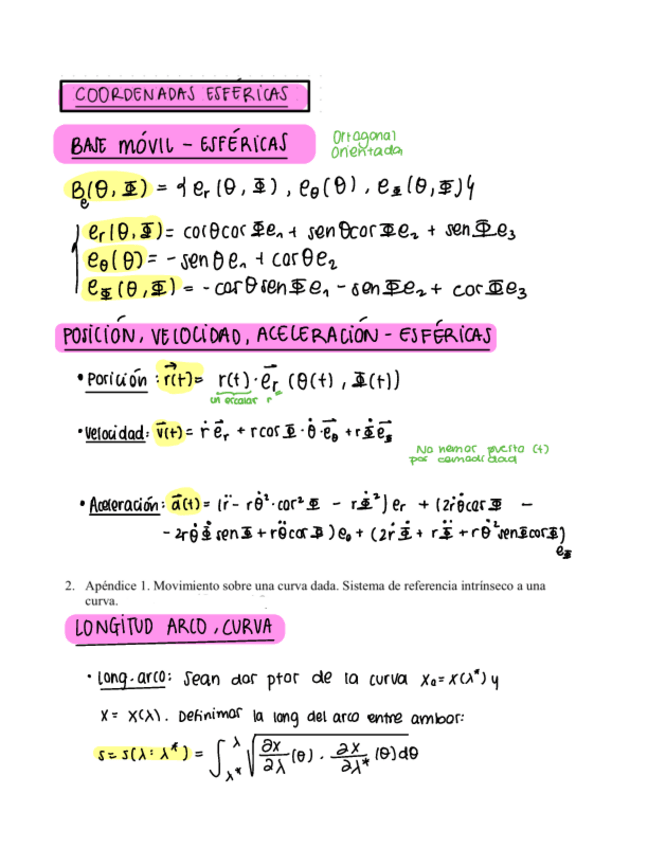 COORDENADAS ESFÉRICAS
BASE MÓVIL - ESFÉRICAS
Ortogonal
Orientada
Be(θ, Φ) = {er(θ, Φ), eθ(θ), eΦ(θ, Φ)}
er(θ, Φ) = cosθcosΦe₁ + senθcosΦe₂ + senΦe₃
eθ(θ) = -senθe₁ + cosθe₂
eΦ(θ, Φ) = -cosθsenΦe₁ - senΦe₂ + cosΦe₃
POSICIÓN, VELOCIDAD, ACELERACIÓN - ESFÉRICAS
• Posición: r⃗(t) = r(t)·e⃗r (θ(t), Φ(t))
un escalar r
• Velocidad: v⃗(t) = ṙe⃗r + rcosΦ·θ̇·e⃗θ + rΦ̇e⃗Φ
No hemos puesto (t)
por comodidad
• Aceleración: a⃗(t) = (r̈ - rθ̇²·cos²Φ - rΦ̇²)er + (2ṙθ̇cosΦ -
- 2rθ̇Φ̇senΦ + rθ̈cosΦ)eθ + (2ṙΦ̇ + rΦ̈ + rθ̇²senΦcosΦ)
eΦ
2. Apéndice 1. Movimiento sobre una curva dada. Sistema de referencia intrínseco a una
curva.
LONGITUD ARCO, CURVA
• Long. arco: Sean dos ptos de la curva x₀ = x(λ*) y
x = x(λ). Definimos la long del arco entre ambos:
s = s(λ; λ*) = ∫λ*^λ √(∂x/∂λ (θ) · ∂x/∂λ* (θ)) dθ